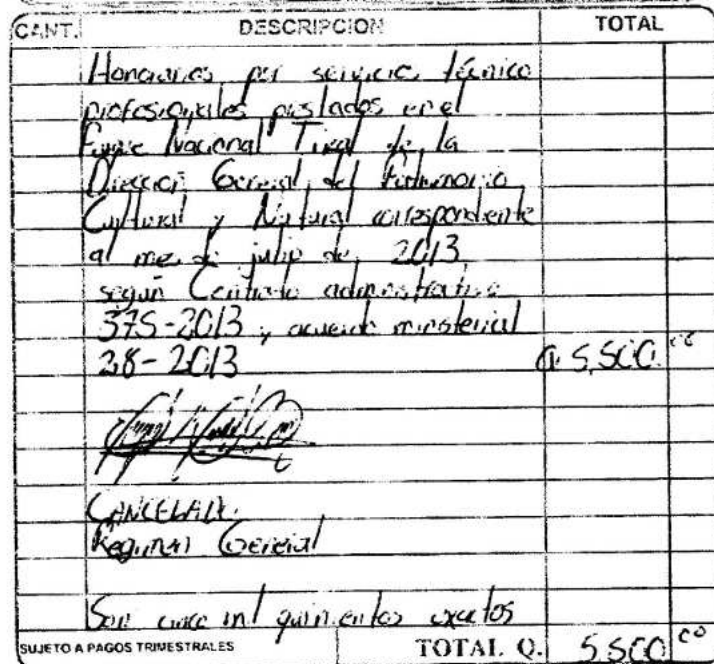 CANT. DESCRIPCION TOTAL
Honorarios por servicios técnico
profesionales prestados en el
Parque Nacional Tikal de la
Dirección General del Patrimonio
Cultural y Natural correspondiente
al mes de julio de 2013
según Contrato administrativo
375-2013 y acuerdo ministerial
28-2013 Q 5,500.00
CANCELADO
Regimen General
Son cinco mil quinientos exactos
SUJETO A PAGOS TRIMESTRALES TOTAL Q. 5,500 00